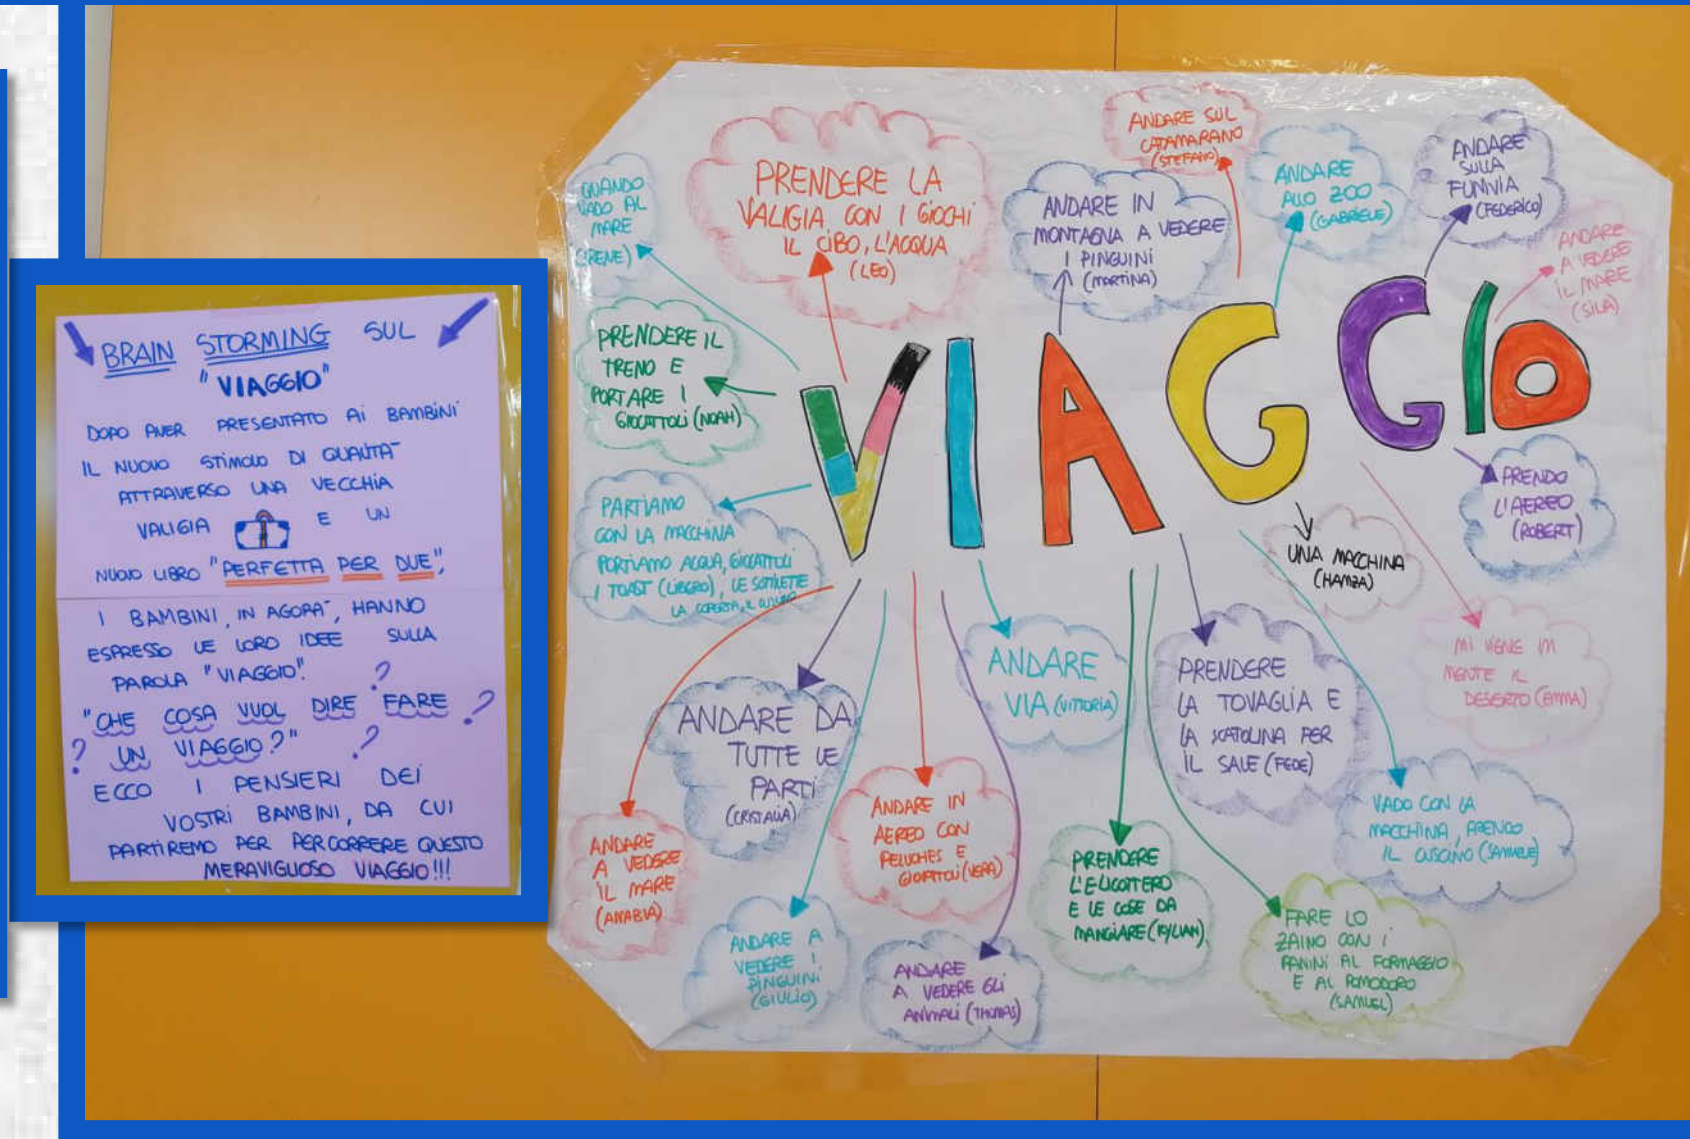 BRAIN STORMING SUL
"VIAGGIO"
DOPO AVER PRESENTATO Ai BAMBiNi
IL NUOVO STiMOLO Di QUALITA'
ATTRAVERSO UNA VECCHiA
VALIGIA E UN
NUOVO LIBRO "PERFETTA PER DUE",
I BAMBINI, IN AGORA', HANNO
ESPRESSO LE LORO IDEE SULLA
PAROLA "VIAGGIO".
"CHE COSA VUOL DIRE FARE ?
? UN VIAGGIO?" ?
ECCO I PENSIERI DEI
VOSTRI BAMBINI, DA CUI
PARTIREMO PER PERCORRERE QUESTO
MERAVIGLIOSO VIAGGIO!!!
VIAGGIO
QUANDO
VADO AL
MARE
(IRENE)
PRENDERE LA
VALIGIA CON I GiOCHi
IL CiBO, L'ACQUA
(LEO)
ANDARE IN
MONTAGNA A VEDERE
I PINGUINI
(MARTINA)
ANDARE SUL
CATAMARANO
(STEFANO)
ANDARE
ALLO ZOO
(GABRIELE)
ANDARE
SULLA
FUNIVIA
(FEDERICO)
ANDARE
A VEDERE
IL MARE
(SILA)
PRENDERE IL
TRENO E
PORTARE I
GIOCATTOLI (NOAH)
PARTIAMO
CON LA MACCHINA
PORTIAMO ACQUA, GIOCATTOLI
I TOAST (LIBERO), LE SOTTILETTE
LA COPERTA, IL CUSCINO
PRENDO
L'AEREO
(ROBERT)
UNA MACCHINA
(HAMZA)
MI VIENE IN
MENTE IL
DESERTO (EMMA)
ANDARE
VIA (VITTORIA)
PRENDERE
LA TOVAGLIA E
LA SCATOLINA PER
IL SALE (FEDE)
ANDARE DA
TUTTE LE
PARTI
(CRISTALIA)
VADO CON LA
MACCHINA, PRENDO
IL CUSCINO (SAMUELE)
ANDARE
A VEDERE
IL MARE
(ANABIA)
ANDARE IN
AEREO CON
PELUCHES E
GIOCATTOLI (VERA)
PRENDERE
L'ELICOTTERO
E LE COSE DA
MANGIARE (KYLIAN)
ANDARE A
VEDERE I
PINGUINI
(GIULIO)
ANDARE
A VEDERE GLI
ANIMALI (THOMAS)
FARE LO
ZAINO CON I
PANINI AL FORMAGGIO
E AL POMODORO
(SAMUEL)